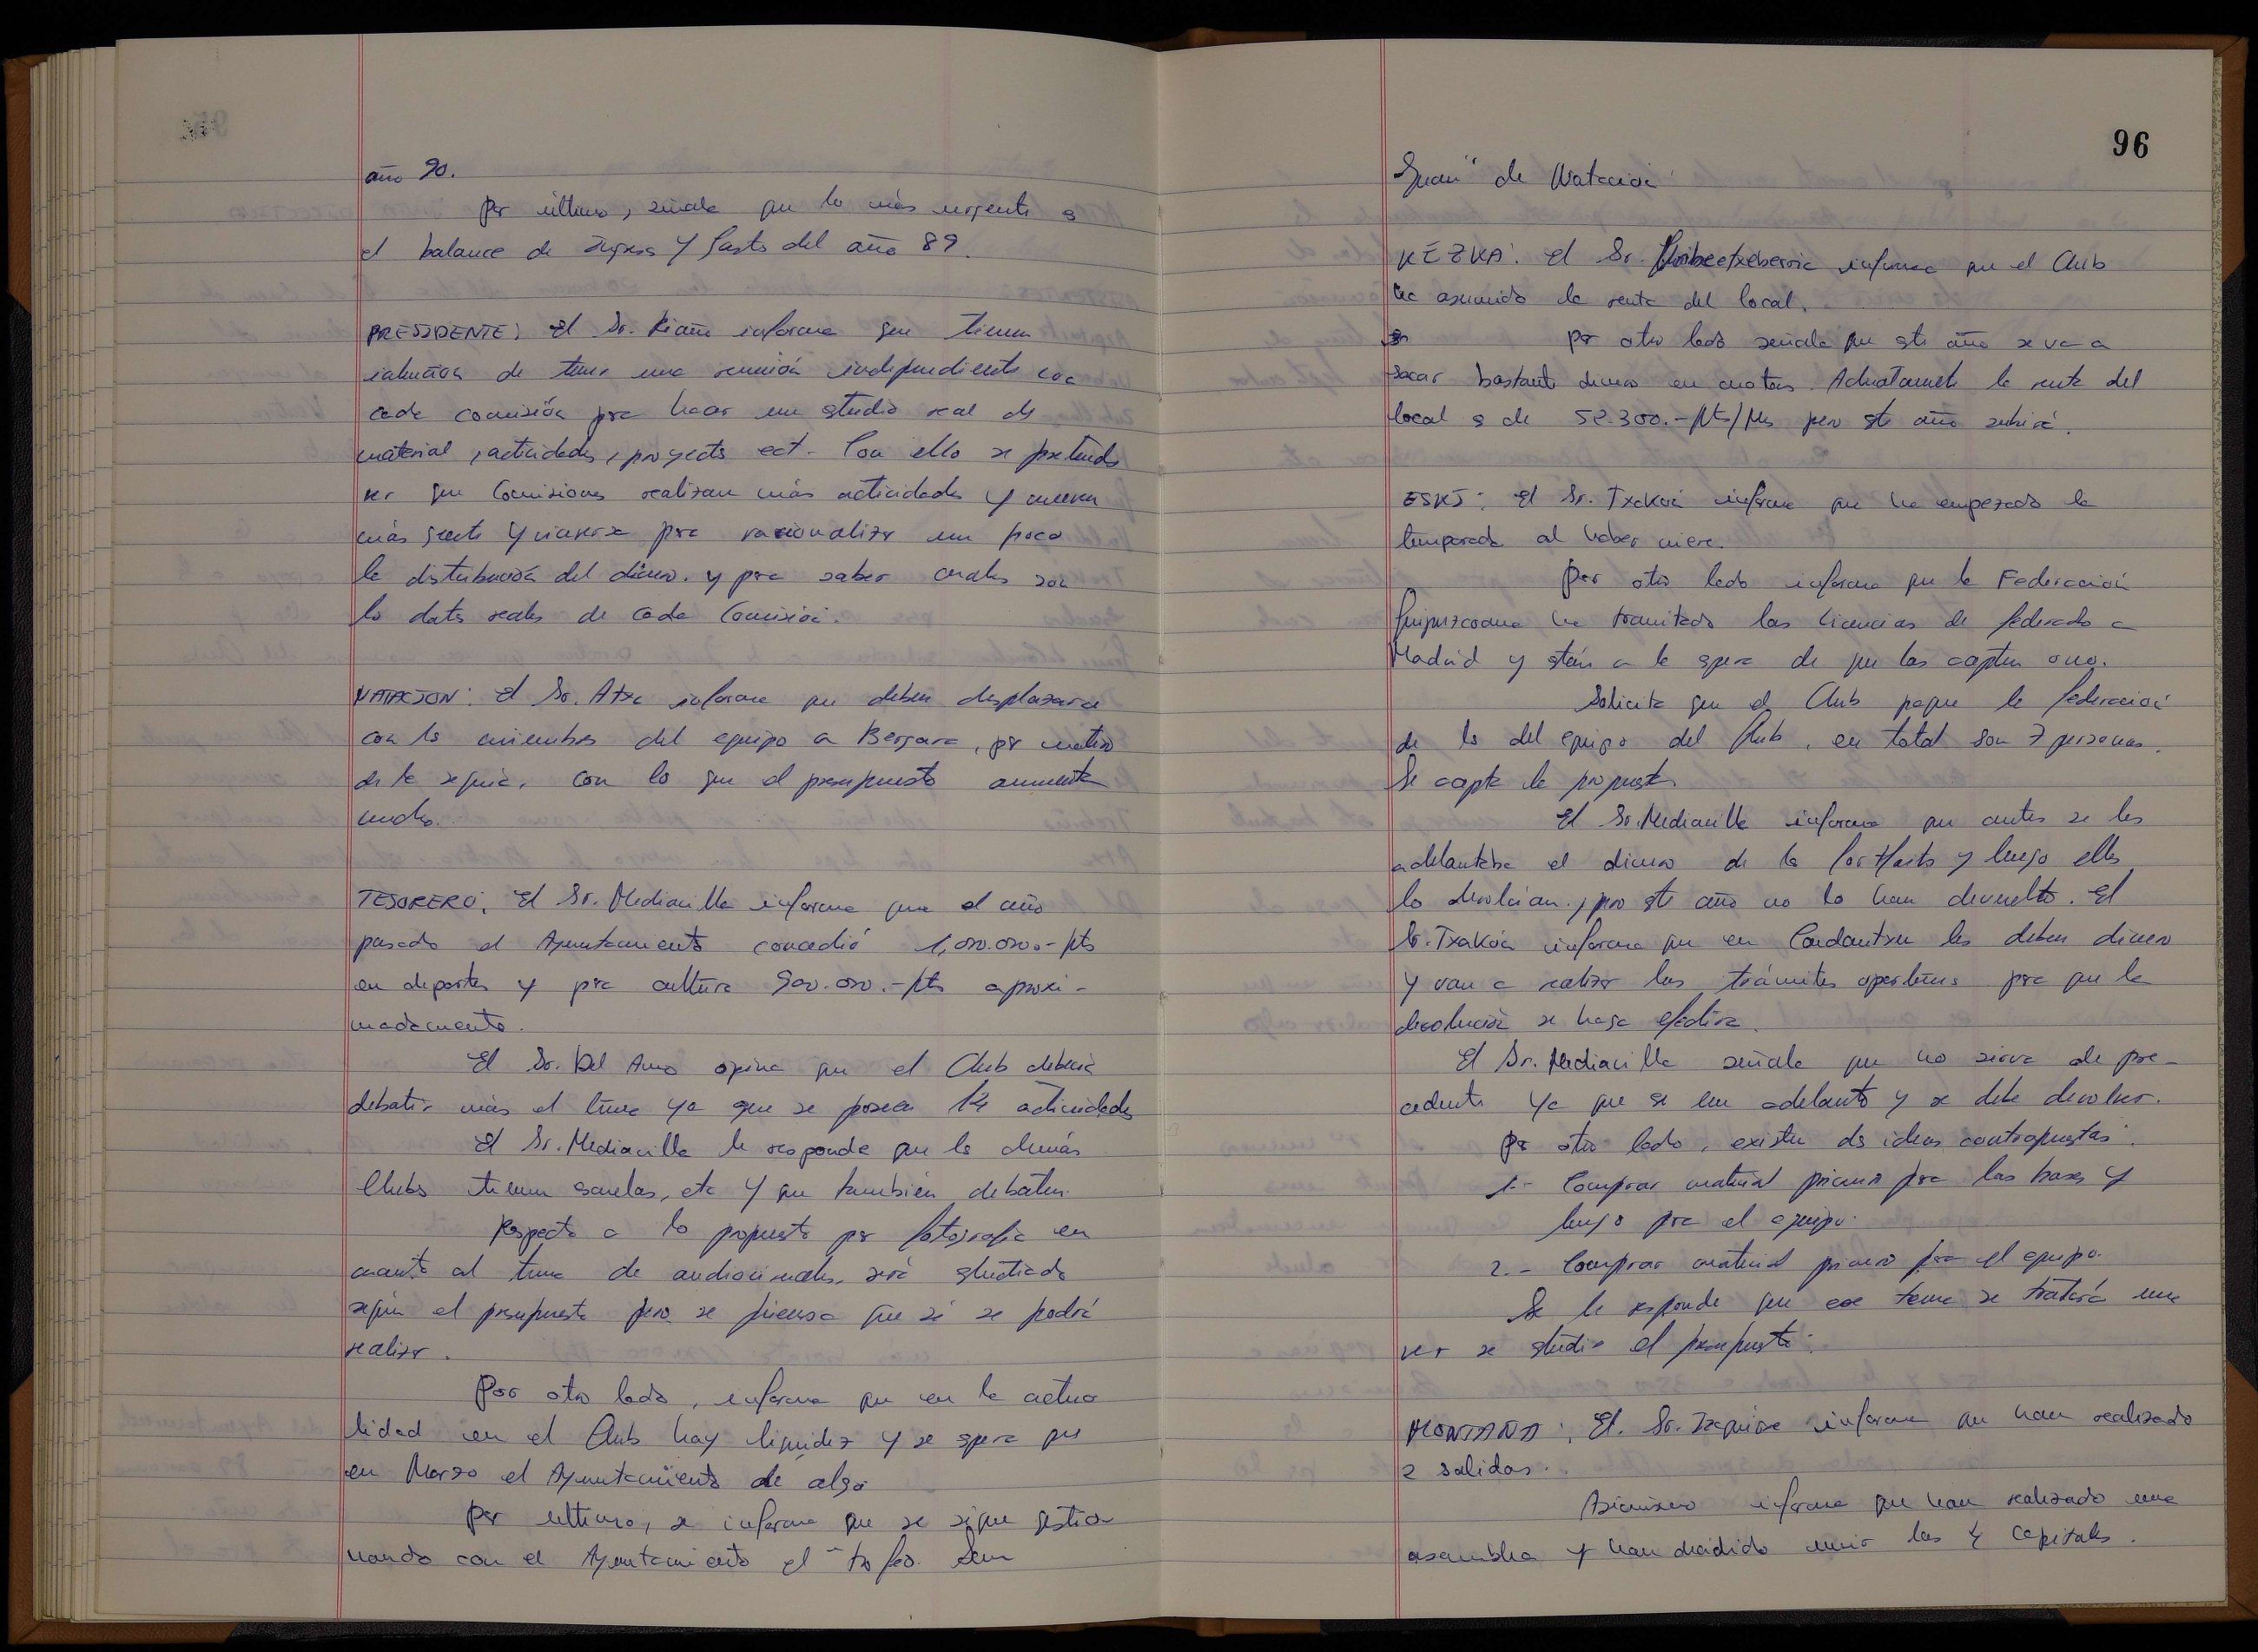 año 90.
Por último, señala que lo más urgente es
el balance de Ingresos y Gastos del año 89.
PRESIDENTE: El Sr. Riaño informa que tienen
intención de tener una reunión independiente con
cada comisión para hacer un estudio real de
material, actividades, proyectos ect. Con ello se pretende
ver que Comisiones realizan más actividades y mueven
más gente y viceversa para racionalizar un poco
la distribución del dinero. y para saber cuales son
los datos reales de cada Comisión.
NATACION: El Sr. Atxa informa que deben desplazarse
con los miembros del equipo a Bergara, por motivo
de la sequía, con lo que el presupuesto aumenta
mucho.
TESORERO: El Sr. Mediavilla informa que el año
pasado el Ayuntamiento concedió 1,000.000.-pts
en deportes y para cultura 900.000.-pts aproxi-
madamente.
El Sr. Del Amo opina que el Club debería
debatir más el tema ya que se poseen 14 actividades
El Sr. Mediavilla le responde que los demás
Clubs tienen escuelas, etc y que también debaten.
Respecto a lo propuesto por fotografía en
cuanto al tema de audiovisuales, será estudiado
según el presupuesto pero se piensa que sí se podrá
realizar.
Por otro lado, informa que en la actua
lidad en el Club hay liquidez y se espera que
en Marzo el Ayuntamiento dé algo
Por ultimo, se informa que se sigue gestio
nando con el Ayuntamiento el "trofeo San
96
Juan" de Natación
KEZKA: El Sr. Uribeetxeberria informa que el Club
ha asumido la renta del local.
Por otro lado señala que este año se va a
sacar bastante dinero en cuotas. Actualmente la renta del
local es de 52.300.-Pts/Mes pero este año subirá.
ESKI: El Sr. Txakoa informa que ha empezado la
temporada al haber nieve.
Por otro lado informa que la Federación
Guipuzcoana ha tramitado las licencias de federado a
Madrid y están a la espera de que las acepten o no.
Solicita que el Club pague la federación
de los del equipo del Club, en total son 7 personas.
Se acepta la propuesta
El Sr. Mediavilla informa que antes se les
adelantaba el dinero de los forfaits y luego ellos
lo devolvían, pero este año no lo han devuelto. El
Sr. Txakoa informa que en Candantxu les deben dinero
y van a realizar los trámites oportunos para que la
devolución se haga efectiva.
El Sr. Mediavilla señala que no sirva de pre-
cedente ya que es un adelanto y se debe devolver.
Por otro lado, existen dos ideas contrapuestas:
1.- Comprar material primero para las bases y
luego para el equipo.
2.- Comprar material primero para el equipo.
Se le responde que ese tema se tratará una
vez se estudie el presupuesto.
MONTAÑA: El Sr. Izquierdo informa que han realizado
2 salidas.
Asimismo informa que han realizado una
asamblea y han decidido unir las 4 capitales.